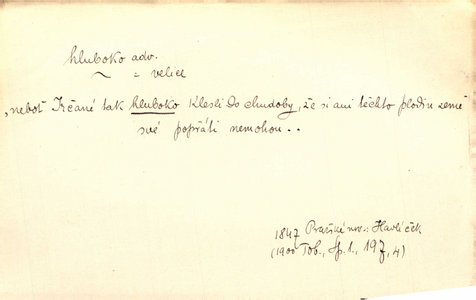 hluboko adv.
~ = velice
„neboť Irčané tak hluboko klesli do chudoby, že si ani těchto plodin země
své popřáti nemohou..
1847 Pražské nov.: Havlíček
(1900 Tob., Sp. 1., 197, 4)